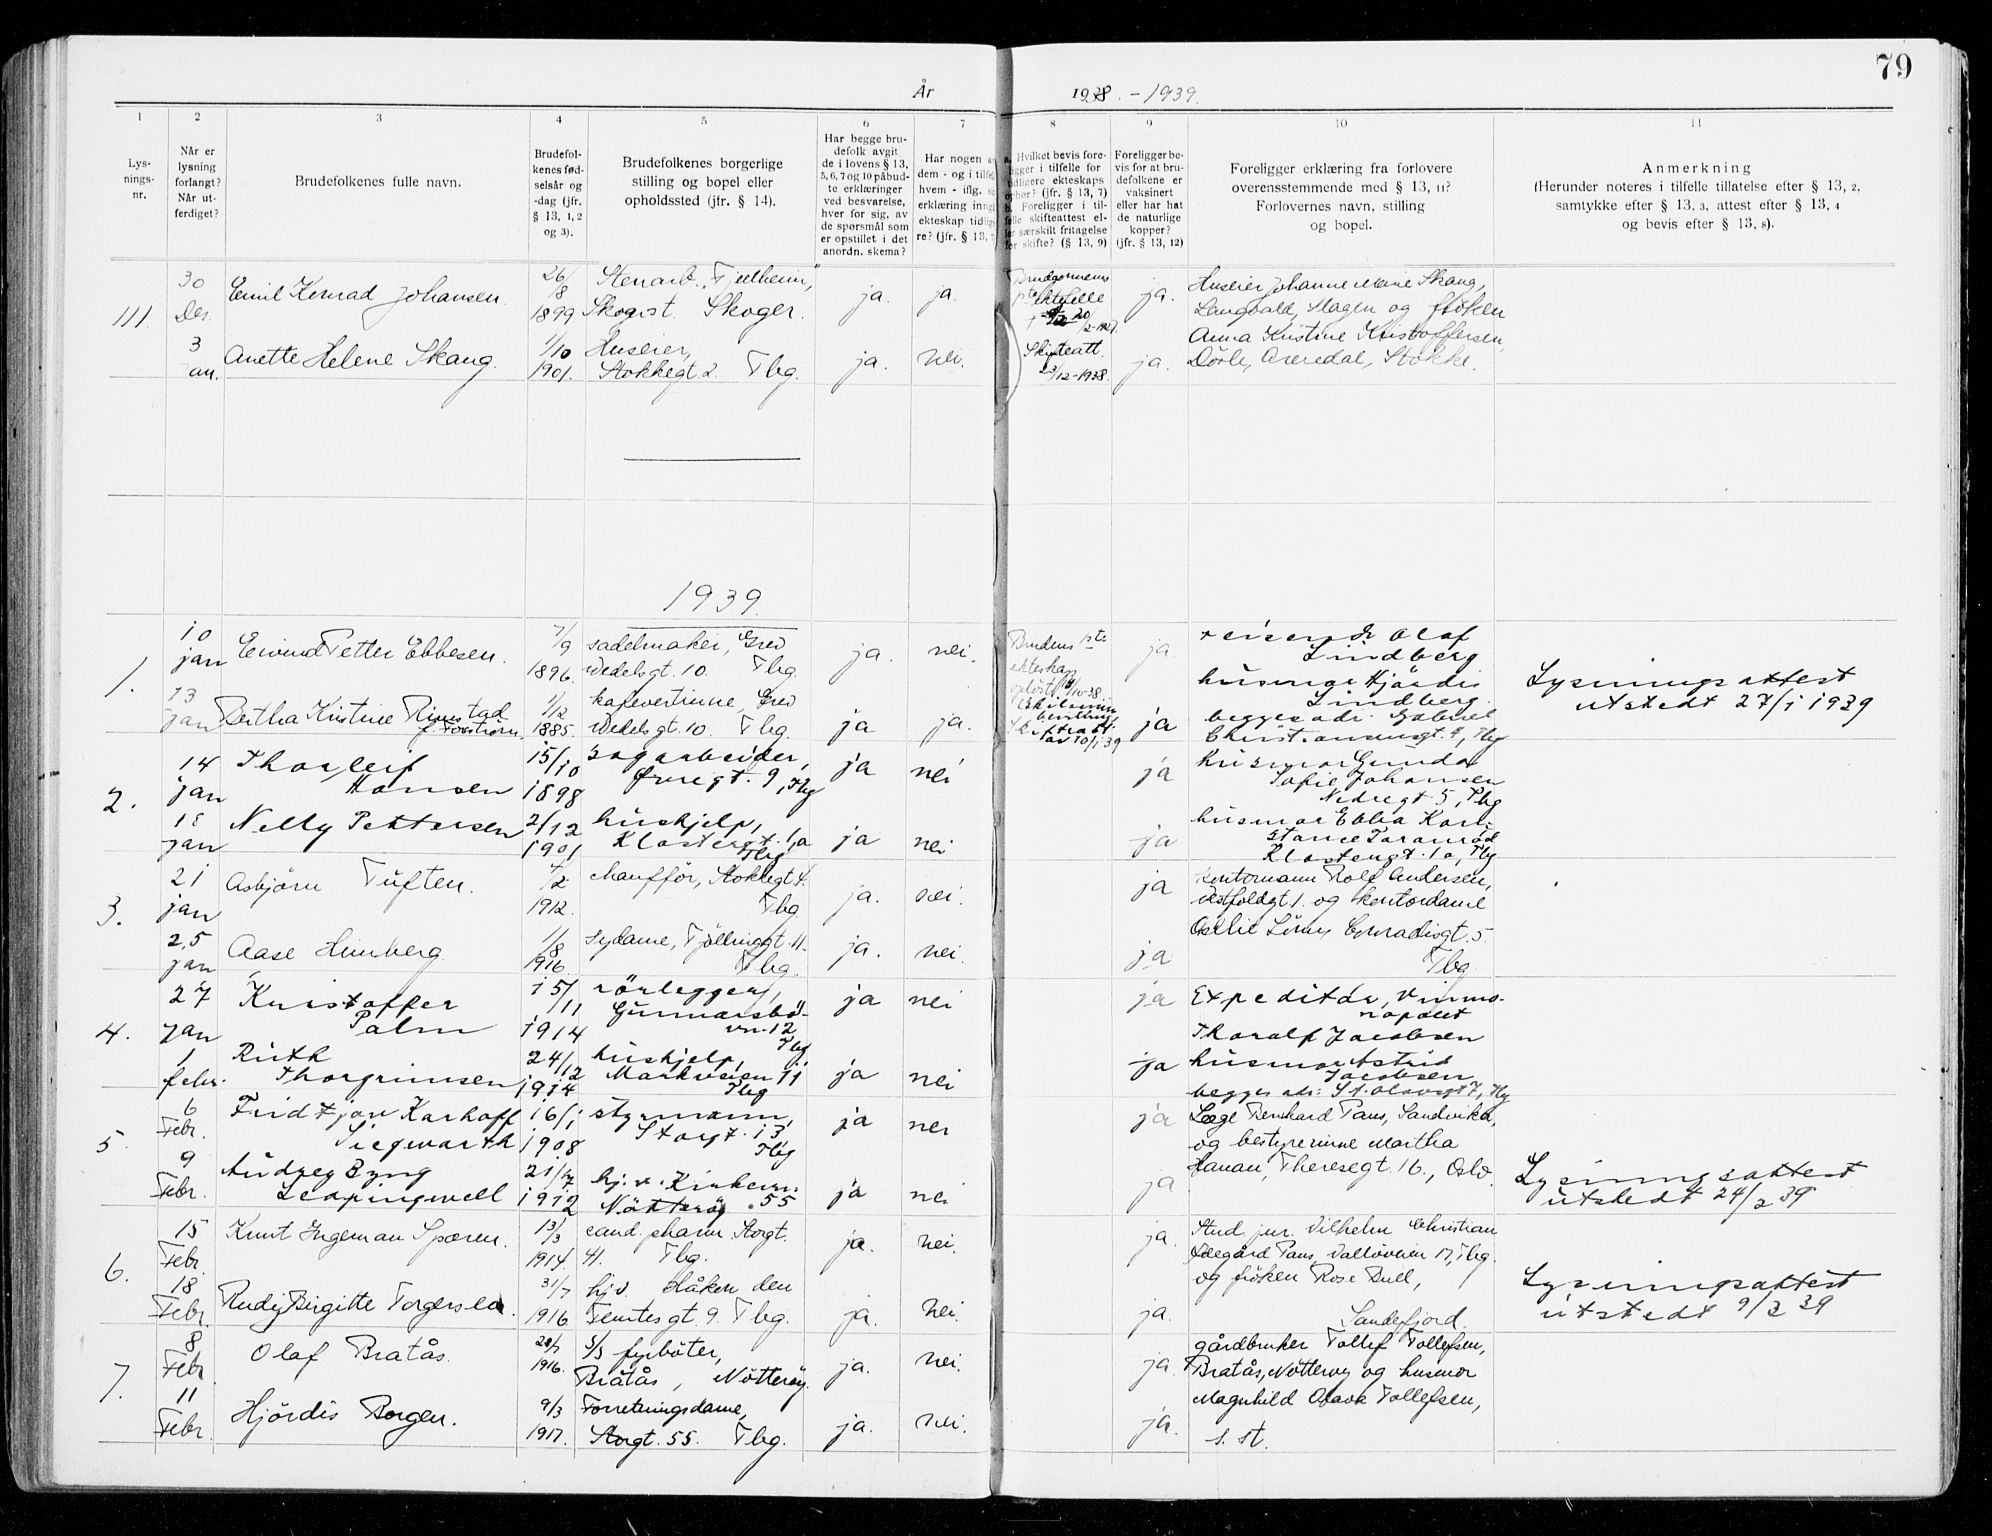 79
År 1938. - 1939.
1 2 3 4 5 6 7 8 9 10 11
Lys-
nings-
nr.
Når er
lysning
forlangt?
Når ut-
ferdiget?
Brudefolkenes fulle navn.
Brudefol-
kenes fød-
selsår og
-dag (jfr.
§ 13, 1, 2
og 3).
Brudefolkenes borgerlige
stilling og bopel eller
opholdssted (jfr. § 14).
Har begge bru-
defolk avgit
de i lovens § 13,
5, 6, 7 og 10 påbud-
te erklæringer
ved besvarelse,
hver for sig, av
de spørsmål som
er opstillet i det
anordn. skema?
Har nogen a
dem - og i tilfel
hvem - iflg.
erklæring inng
ekteskap tidlig
re? (jfr. § 13,
a. Hvilket bevis fore-
ligger i tilfelle for
tidligere ekteskaps
ophør? (jfr. § 13, 7)
b. Foreligger i til-
felle skifteattest el-
ler særskilt fritagelse
for skifte? (§ 13, 9)
Foreligger be-
vis for at bru-
defolkene er
vaksinert
eller har hat
de naturlige
kopper?
(jfr. § 13, 12)
Foreligger erklæring fra forlovere
overensstemmende med § 13, 11?
Forlovernes navn, stilling
og bopel.
Anmerkning
(Herunder noteres i tilfelle tillatelse efter § 13, 2,
samtykke efter § 13, 3, attest efter § 13, 4
og bevis efter § 13, 8).
111.
30
Des.
Emil Konrad Johansen.
26/8
1899
Stenarb. "Fjellheim",
Skogst. Skoger.
ja. ja.
Brudgommens
1ste ektefelle
20/2-1927.
ja.
Huseier Johanne Marie Skaug,
Langvald, Slagen og frøken
3
an.
Anette Helene Skaug.
1/10
1901.
Huseier,
Stokkegt. 2. Tbg.
ja. nei.
Skifteatt.
23/12-1938.
ja.
Anna Kristine Kristoffersen,
Dørle, Arendal, Stokke.
1939.
1.
10
jan
Eivind Petter Ebbesen.
7/9
1896.
sadelmaker, Grev
Wedelsgt. 10. Tbg.
ja. nei.
Brudens 1ste
ekteskap
opløst
ja.
reisende Olaf
Lindberg
13
jan
Bertha Kristine Rimstad
1/12
1885.
kafevertinne, Grev
Wedelsgt. 10. Tbg.
ja ja.
av 10/1 39
ja
husmor Hjørdis
Lindberg
begges adr. Gabriel
Christiansensgt. 4, Tbg
Lysningsattest
utstedt 27/1 1939
2.
14
jan
Thorleif
Hansen
15/10
1898
sagarbeider,
Øvregt. 9, Tbg
ja nei
ja
husmor Gunda
Sofie Johansen
Nedregt 5, Tbg
18
jan
Nelly Pettersen
2/12
1901
hushjelp,
Klostergt. 1a
Tbg
ja nei
ja
husmor Ebba Kon-
stance Taranrød
Klostergt. 1a, Tbg
3.
21
jan
Asbjørn Tuften.
4/2
1912.
chauffør, Stokkegt 4.
Tbg
ja. nei.
ja
Kontormann Rolf Andersen,
Vestfoldgt 1. og kontordame
25
jan
Aase Himberg
1/8
1916.
sydame, Tjøllinggt. 11.
Tbg.
ja. nei.
ja
Conradisgt. 5.
Tbg
4.
27
jan
Kristoffer
Palm
15/11
1914
rörlegger,
Gunnarsbö-
vn. 12
Tbg
ja nei
ja
Expeditör, vinmo-
nopolet
Tharalf Jacobsen
1
febr.
Ruth
Thorgrimsen
24/12
1914
hushjelp,
Markveien 11
Tbg
ja nei
ja
husmor Astrid
Jacobsen
begges adr: St. Olavsgt 7, Tbg
5.
6
Febr.
Fridtjov Karhoff
Siegwarth
16/1
1908
styrmann,
Storgt. 13,
Tbg
ja nei
ja
Læge Bernhard Paus, Sandvika,
og bestyrerinne Martha
9
Febr.
Audrey Byng
Leapingwell
21/7
1912
hj. v. Kirkevn.
Nöttröy. 55
ja nei
ja
Hanan, Theresegt. 16., Oslo.
Lysningsattest
utstedt 24/2 39
6.
15
Febr.
Knut Ingeman Sporen.
13/3
1914.
cand. pharm. Storgt.
41. Tbg.
ja. nei.
ja.
Stud. jur. Vilhelm Christian
Ødegård Paus, Valløveien 17, Tbg.
18
Febr.
Rudy Birgitte Torgersen.
31/7
1916
hjv. Håkon den
Femtes gt. 9. Tbg.
ja. nei.
ja.
og frøken Rose Bull,
Sandefjord.
Lysningsattest
utstedt 9/3 39
7.
8
Febr.
Olaf Bratås.
1916.
s/s fyrbøter,
Bråtås, Nøtterøy.
ja. nei.
ja
gårdbruker Tollef Tollefsen,
Bratås, Nøtterøy og husmor
11
Febr.
Hjördis Borgen.
9/3
1917.
Forretningsdame,
Storgt. 55. Tbg.
ja. nei.
ja.
Magnhild Olava Tollefsen,
s. st.